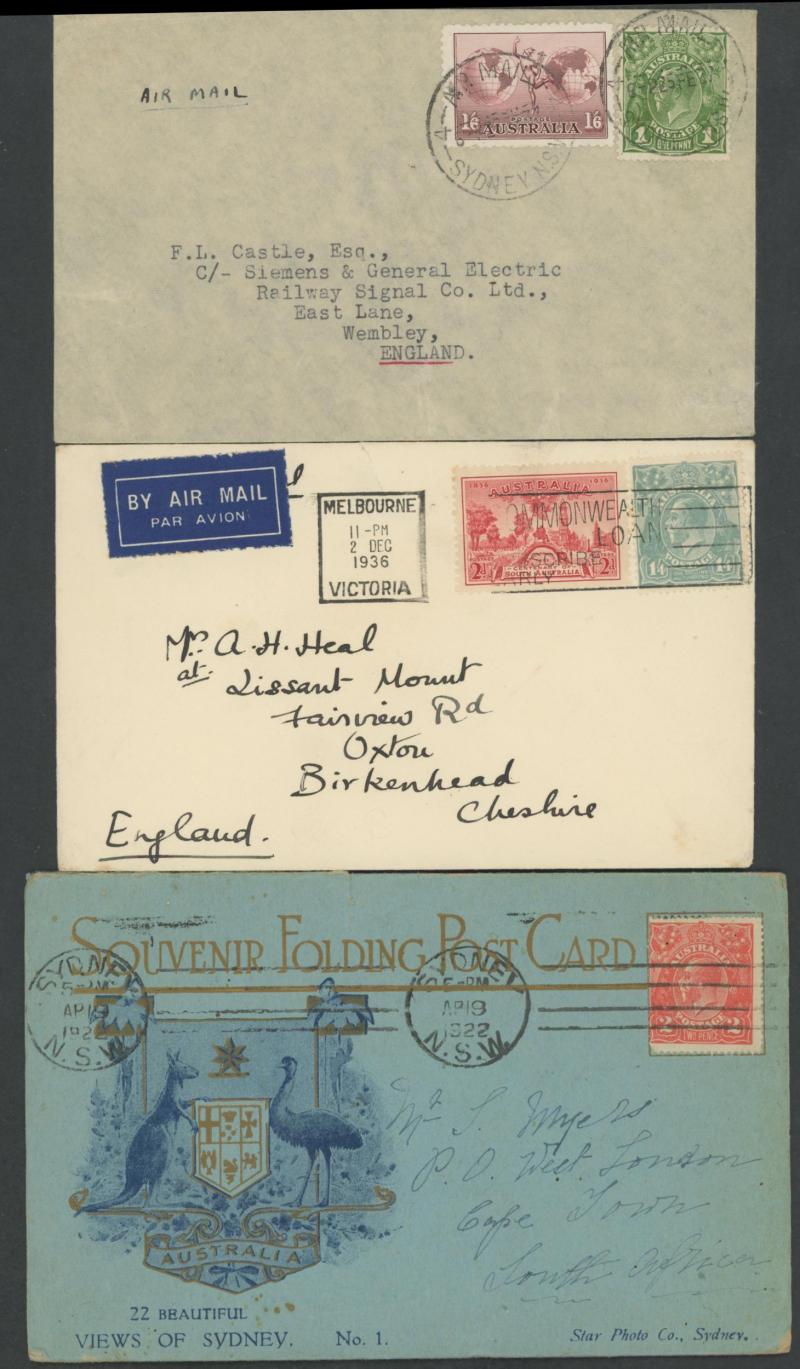 AIR MAIL
1/6 POSTAGE 1/6
AUSTRALIA
AIR MAIL
4
SYDNEY. N.S.W
AUSTRALIA
POSTAGE
1 ONE PENNY 1
AIR MAIL
4
F.L. Castle, Esq.,
C/- Siemens & General Electric
Railway Signal Co. Ltd.,
East Lane,
Wembley,
ENGLAND.
BY AIR MAIL
PAR AVION
MELBOURNE
11-PM
2 DEC
1936
VICTORIA
1836 1936
AUSTRALIA
CENTENARY OF
2d SOUTH AUSTRALIA 2d
POSTAGE
1/4 1/4
COMMONWEALTH
LOAN
SCRIBE
EARLY
Mr. A. H. Heal
at. Lissant Mount
Fairview Rd
Oxton
Birkenhead
Cheshire
England.
SOUVENIR FOLDING POST CARD
SYDNEY
5-PM
AP19
192
N.S.W.
SYDNEY
5-PM
AP19
1922
N.S.W.
AUSTRALIA
POSTAGE
2 TWO PENCE 2
Mr S. Myers
P.O. West London
Cape Town
South Africa
AUSTRALIA
22 BEAUTIFUL
VIEWS OF SYDNEY. No. 1.
Star Photo Co., Sydney.